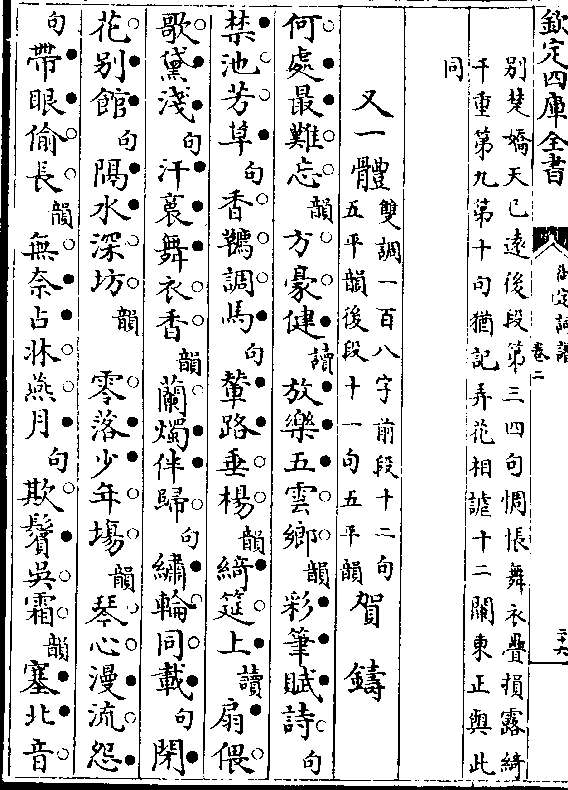 欽定四庫全書
御定詞譜
卷二
三十六
別楚嬌天已遠後段第三四句惆悵舞衣疊損露綺
千重第九第十句猶記弄花相謔十二闌東正與此
同
又一體雙調一百八字前段十二句五平韻後段十一句五平韻賀鑄
何處最難忘韻方豪健讀放樂五雲鄉韻彩筆賦詩句
禁池芳草句香韉調馬句輦路垂楊韻綺筵上讀扇偎
歌黛淺句汗裛舞衣香韻蘭燭伴歸句繡輪同載句閉
花別館句隔水深坊韻零落少年場韻琴心漫流怨
句帶眼偷長韻無奈占牀燕月句欺鬢吳霜韻塞北音